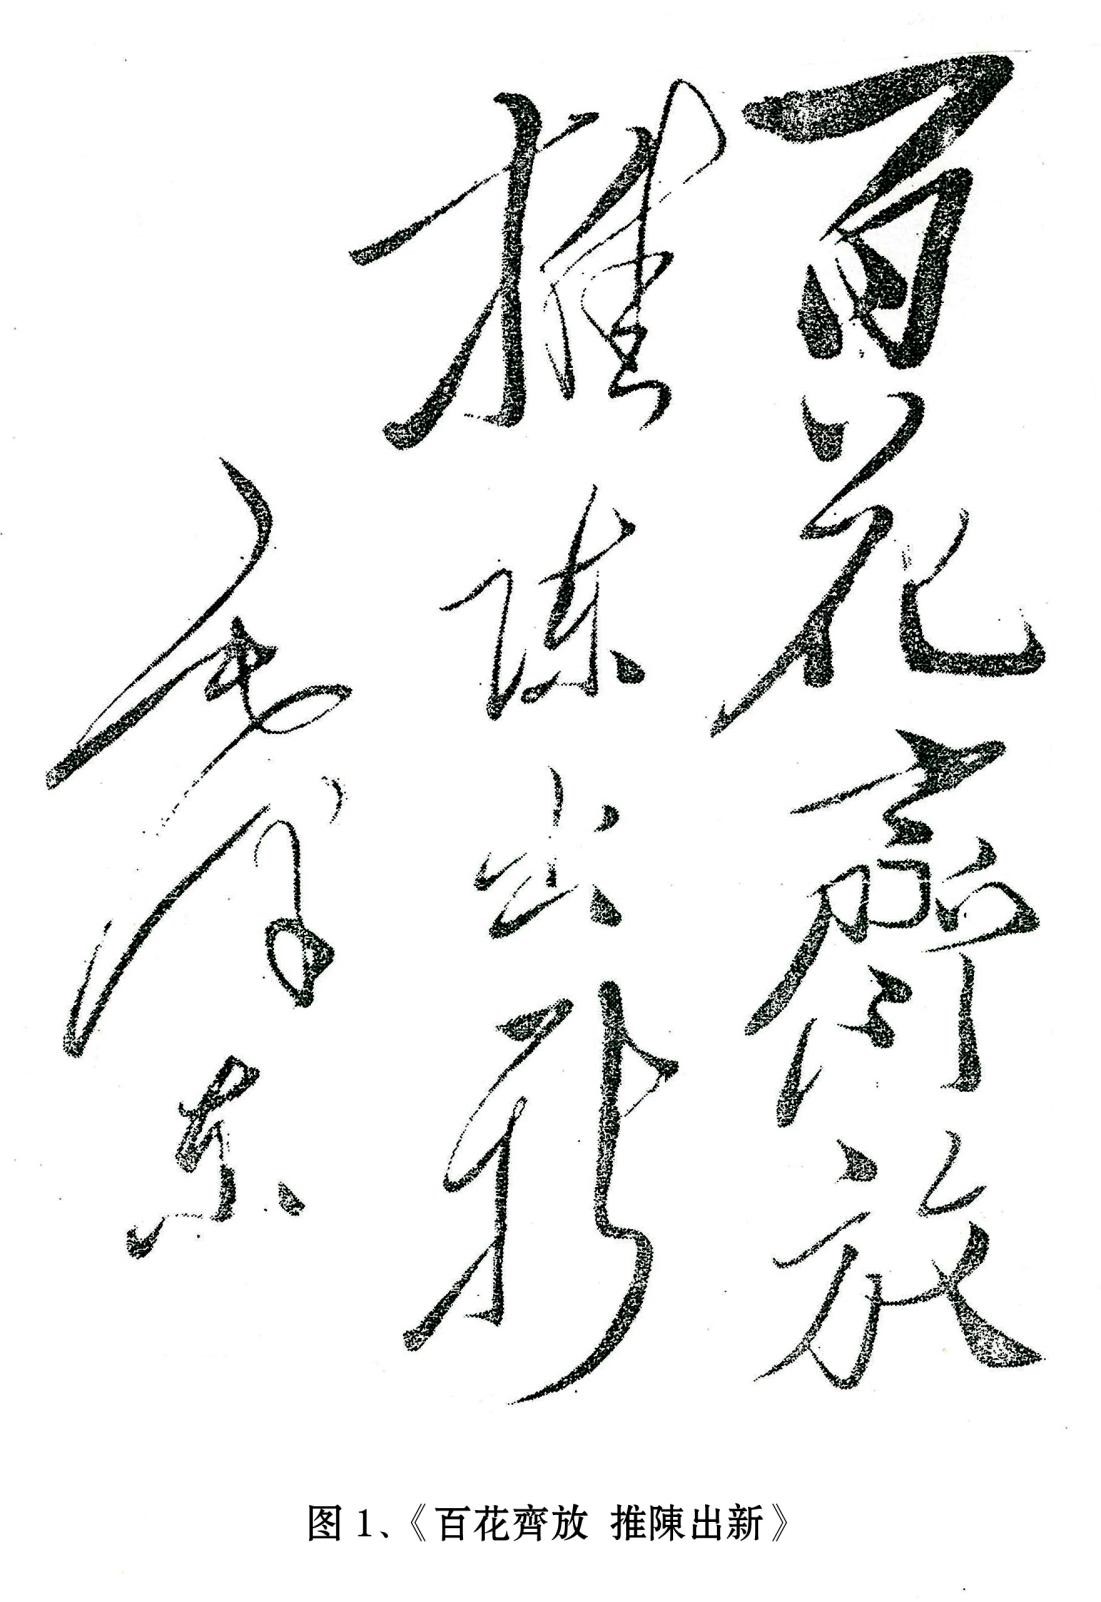 百花齊放
推陈出新
毛泽东
图1、《百花齊放 推陳出新》